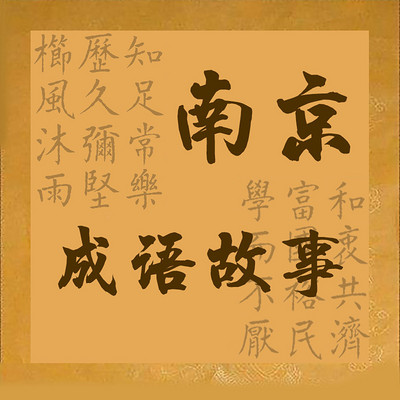 南京
成语故事
知足常樂
歷久彌堅
櫛風沐雨
和衷共濟
富國裕民
學而不厭